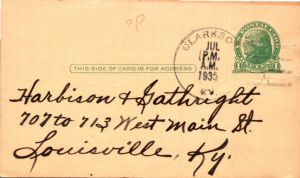 OP
CLARKSO
JUL
1 P.M.
A.M.
1935
KY.
THIS SIDE OF CARD IS FOR ADDRESS
1 1
Harbison & Gathright
707 to 713 West Main St.
Louisville, Ky.